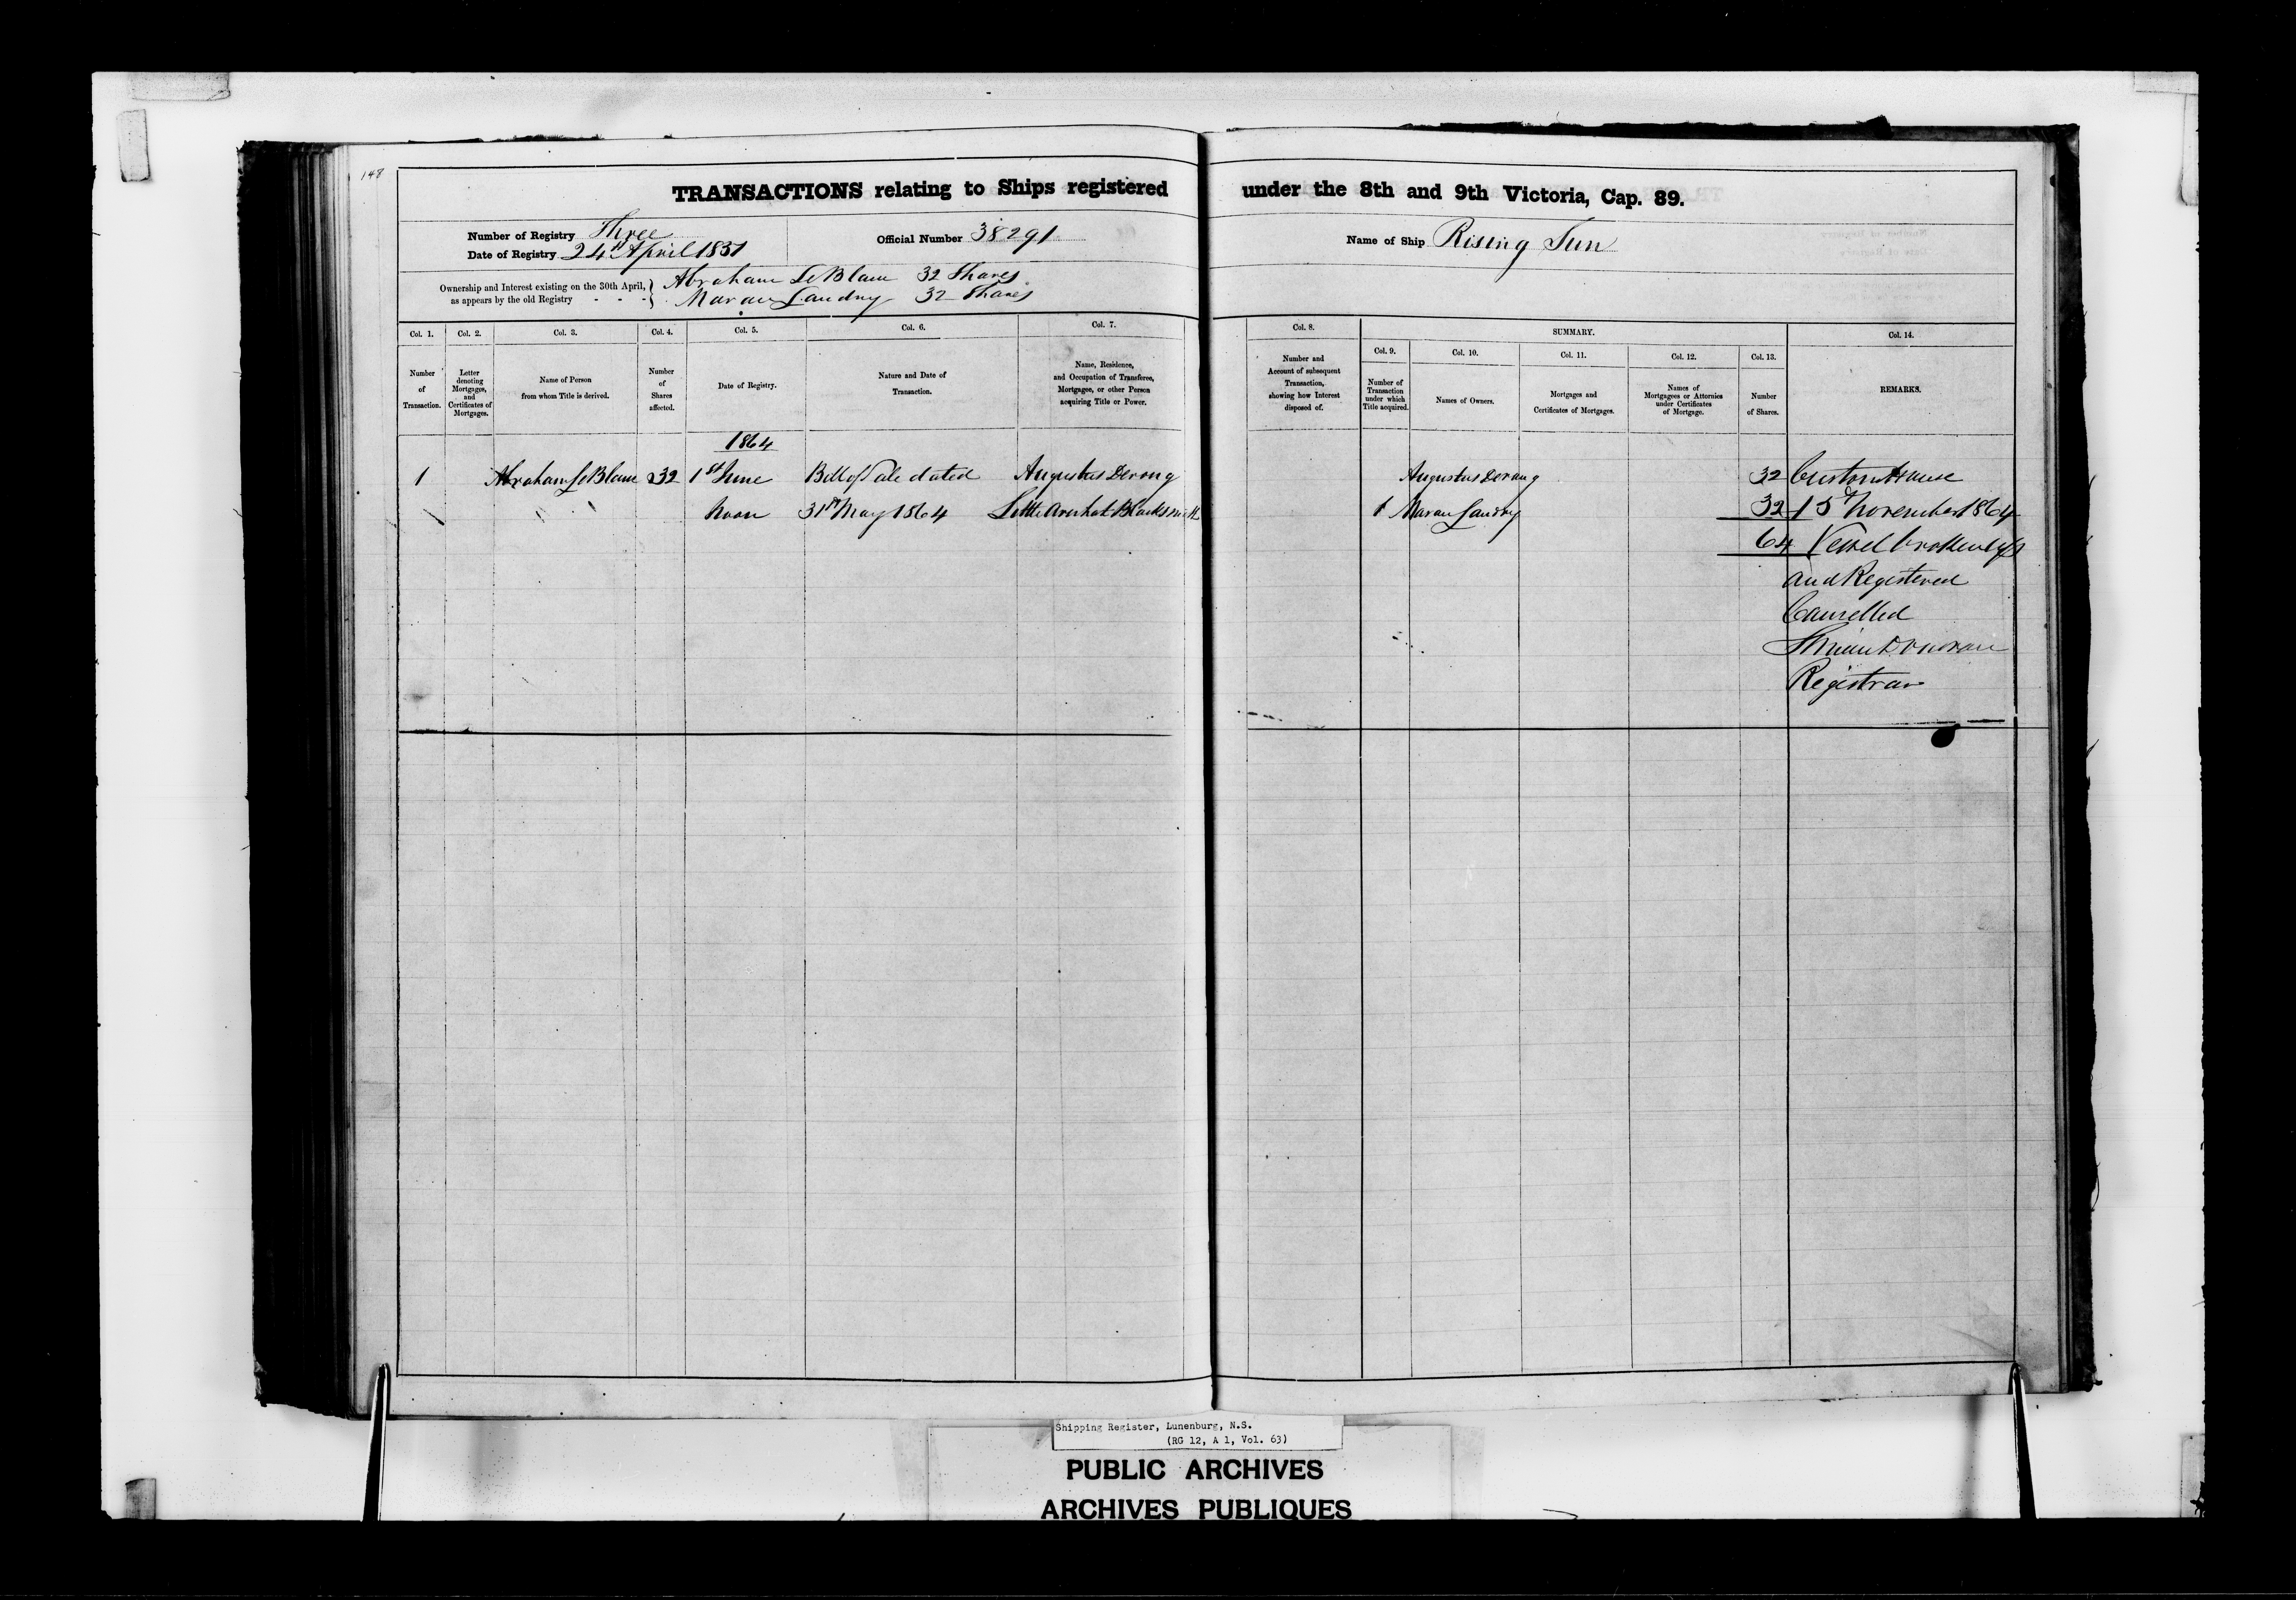 148
TRANSACTIONS relating to Ships registered under the 8th and 9th Victoria, Cap. 89.
Number of Registry Three
Date of Registry 24th April 1851
Official Number 38291
Name of Ship Rising Sun
Ownership and Interest existing on the 30th April, as appears by the old Registry - - -
Abraham LeBlanc 32 Shares
Landry 32 Shares
Col. 1.
Number of Transaction.
Col. 2.
Letter denoting Mortgages, and Certificates of Mortgages.
Col. 3.
Name of Person from whom Title is derived.
Col. 4.
Number of Shares affected.
Col. 5.
Date of Registry.
Col. 6.
Nature and Date of Transaction.
Col. 7.
Name, Residence, and Occupation of Transferee, Mortgagee, or other Person acquiring Title or Power.
Col. 8.
Number and Account of subsequent Transaction, showing how Interest disposed of.
SUMMARY.
Col. 9.
Number of Transaction under which Title acquired.
Col. 10.
Names of Owners.
Col. 11.
Mortgages and Certificates of Mortgages.
Col. 12.
Names of Mortgagees or Attornies under Certificates of Mortgage.
Col. 13.
Number of Shares.
Col. 14.
REMARKS.
1864
1 Abraham LeBlanc 32 1st June Bill of Sale dated Augustus
Noon 31st May 1864 Little Arichat Blacksmith
Augustus 32 Custom House
1 Landry 32 15th November 1864
64 Vessel broken up
and Registered
Cancelled
Registrar
Shipping Register, Lunenburg, N.S.
(RG 12, A 1, Vol. 63)
PUBLIC ARCHIVES
ARCHIVES PUBLIQUES